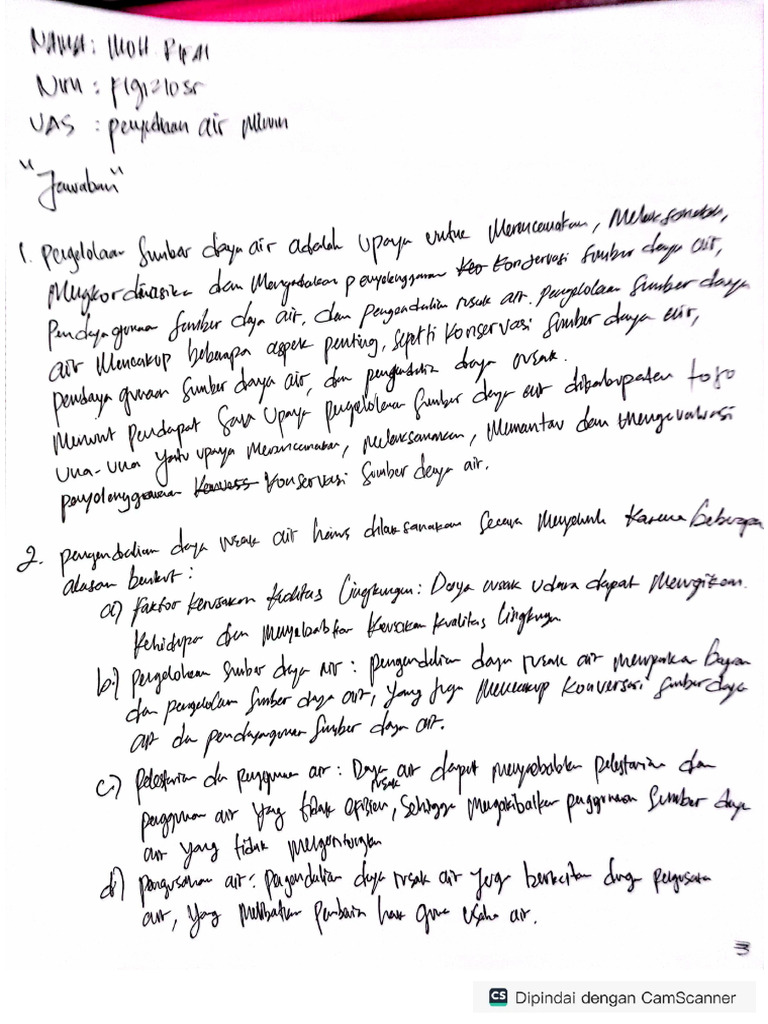 NAMA : MOH. RIFAI
NIM : F19121055
UAS : penyediaan air Minum
"Jawaban"
1. Pengelolaan Sumber daya air adalah upaya untuk Merencanakan, Melaksanakan,
Mengkordinasika dan Mengendalian penyelenggaraan Konservasi Sumber daya air,
Pendayagunaan Sumber daya air, dan pengendalian rusak air. Pengelolaan Sumber daya
air Mencakup beberapa aspek penting, seperti Konservasi Sumber daya air,
pendaya gunaan Sumber daya air, dan pengendalia daya rusak.
Menurut Pendapat Saya Upaya pengelolaan Sumber daya air dikabupaten tojo
Una-Una yaitu upaya Merencanakan, Melaksanakan, Memantau dan Mengevaluasi
penyelenggaraan Konservasi Sumber daya air.
2. pengendalian daya rusak air harus dilaksanakan Secara Menyeluruh Karena beberapa
alasan berikut :
a) faktor Kerusakan Kualitas Lingkungan : Daya rusak udara dapat Merugikan
Kehidupan dan Menyebabkan Kerusakan Kualitas Lingkungan
b) Pengelolaan Sumber daya air : pengendalian daya rusak air merupakan bagian
dan pengelolaan Sumber daya air, yang juga Mencakup Konversasi Sumber daya
air dan pendayagunaan Sumber daya air.
c) Pelestarian dan Penggunaan air : Daya rusak air dapat menyebabkan pelestarian dan
penggunaan air yang tidak efisien, Sehingga Mengakibatkan penggunaan Sumber daya
air yang tidak Menguntungkan
d) Pengusahaan air : Pengendalian daya rusak air juga berkaitan dengan Pengusahaan
air, yang Melibatkan Pemberian hak guna usaha air.
3
CS Dipindai dengan CamScanner